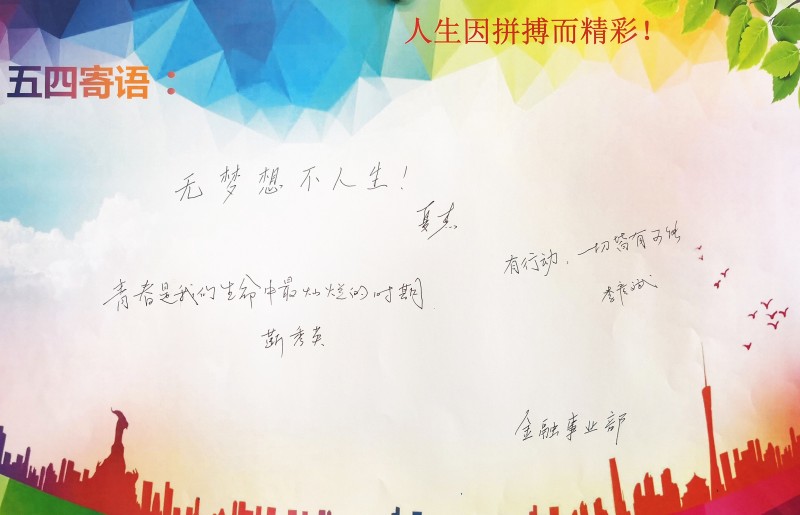 人生因拼搏而精彩!
五四寄语:
无梦想不人生!
夏杰
有行动,一切皆有可能
李彦斌
青春是我们生命中最灿烂的时期
靳秀英
金融事业部